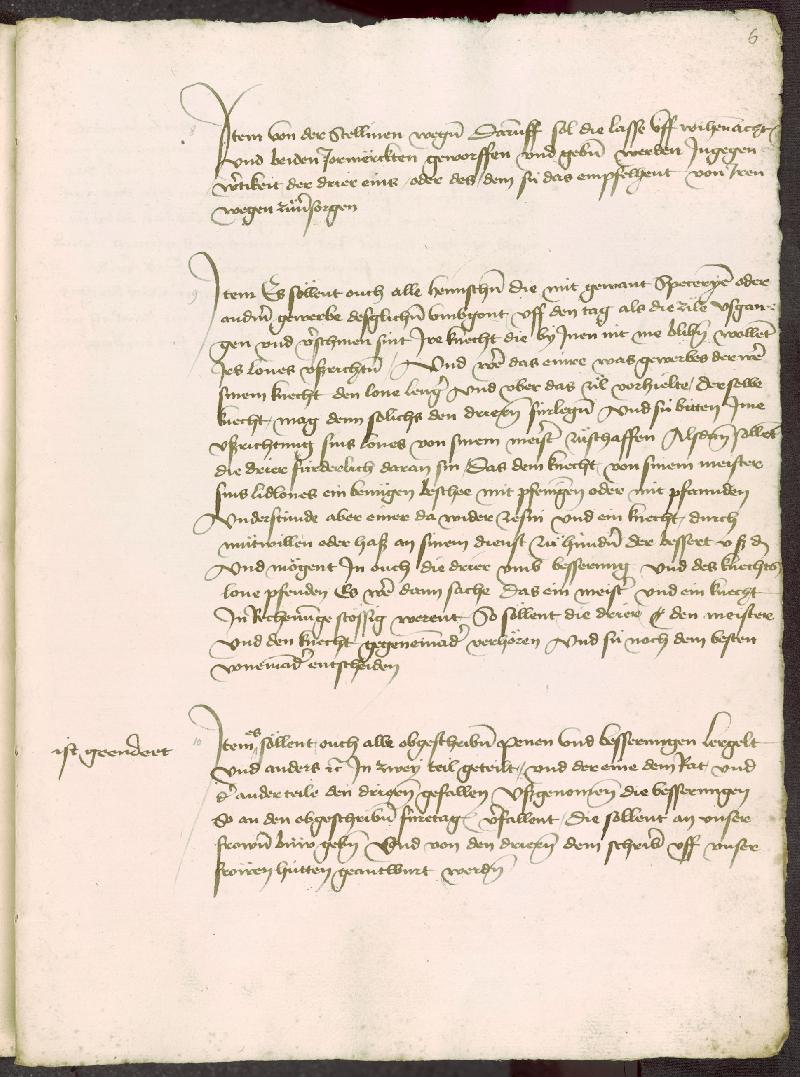 6
Item von der Stellinen wegen Daruff sol die lasse vff wihenacht
Vnd beiden Jormerckten geworffen vnd geben werden Jngegen
wirtikeit der drier eins / oder des / dem sü das empfelhent von Jren
wegen zuuersorgen
9
Item Es söllent ouch alle henischen die mit gewant Specerye oder
andern gewerbe desglichen vmbgont vff den tag als die zile vsgan-
gen vnd verschinen sint Jre knecht die by Jnen nit me bliben wollet
Jrs lones vßrichten / Vnd wer das einre was gewerbes der wer
sinem knecht den lone lenger Vnd vber das zil vorhielte / der selbe
knecht / mag denn solichs den driern fürlegen Vnd sü bitten Jme
vßrichtung sins lones von sinem meister zuschaffen Alsdann sollent
die drier fürderlich daran sin / Das dem knecht von sinem meister
sins lidlones ein benügen beschee mit pfenigen oder mit pfannden
Vnderstünde aber einer da wider zesin vnd ein knecht / durch
mütwillen oder haß an sinem dienst zu hindern der bessert v ß d
Vnd mögent Jn ouch die drier vmb besserung Vnd des knechts
lone pfenden Es wer dann sache das ein meister vnd ein knecht
Jn Rechenunge stössig werent So sollent die drier den meister
Vnd den knecht gegeneinander verhören Vnd sü noch dem besten
voneinander entscheiden
ist geendert
10
Item es söllent ouch alle obgeschriben Penen vnd besserungen
vnd anders etc Jn zwey teil geteilt / vnd der eine dem Rat vnd
der ander teile den driern gefallen Vßgenomen die besserungen
So an den obgeschriben firetag verfallent / die sollent an vnser
frowen büw geben Vnd von den driern dem schriber vff vnser
frowen hütten geantwurt werden